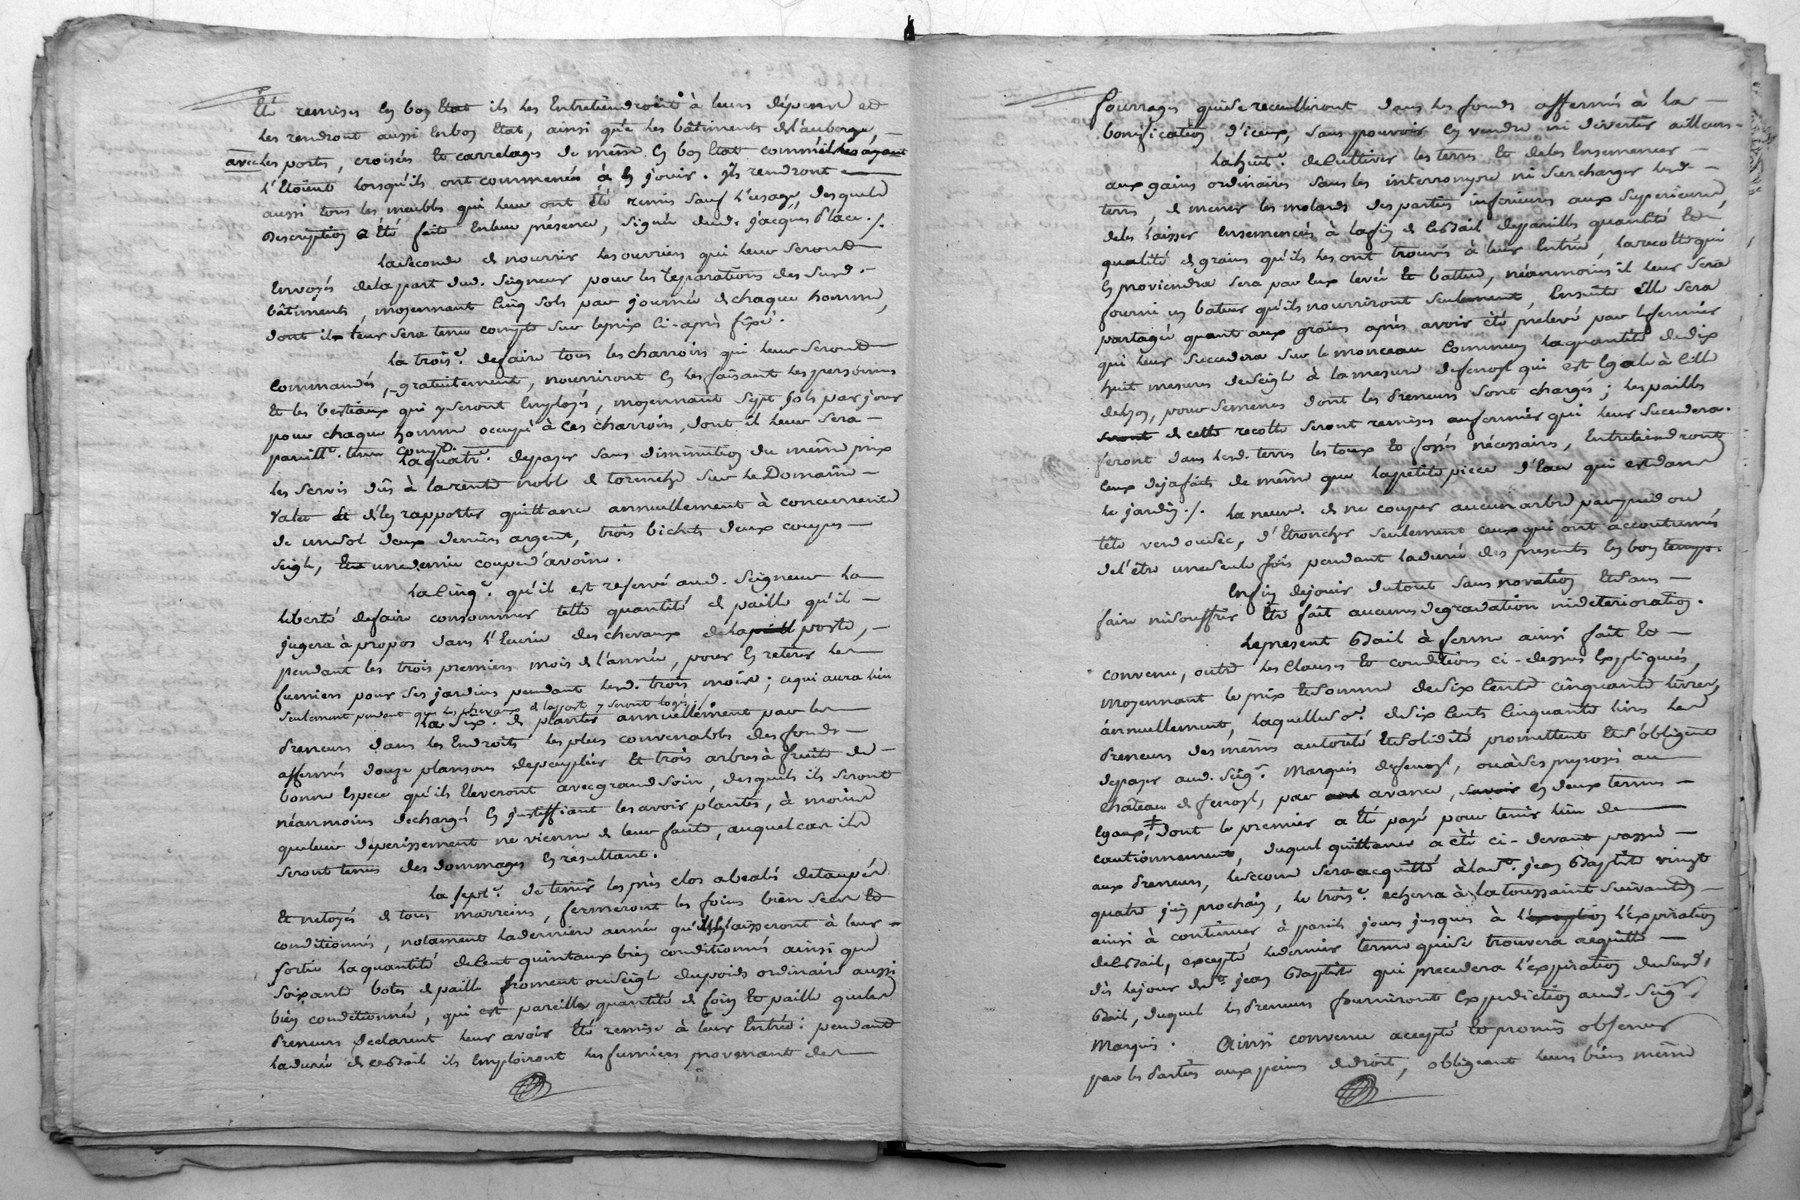 Eté remises En bon Etat ils les Entretiendront à leurs dépens et
les rendront aussi En bon Etat, ainsi que les bâtiments de l'auberge,
avec les portes, croisées Et carrelages de même En bon Etat comme
l'Etoient lorsqu'ils ont commencés à En jouir. Ils rendront
aussi tous les meubles qui leur ont été remis sauf l'usage, desquels
Description a Eté faite En leur présence, signée dud. jacques Place ./.
La seconde de nourrir les ouvriers qui leur seront
Envoyés de la part dud. Seigneur pour les reparations des susd.
bâtiments, moyennant Cinq sols par journée de chaque homme,
dont il leur sera tenu compte sur le prix Ci-après fixé.
La trois.e de faire tous les charrois qui leur seront
Commandés, gratuitement, nourriront En les faisant les personnes
Et les bestiaux qui y seront Employés, moyennant sept sols par jour
pour chaque homme occupé à ces charrois, dont il leur sera
pareill.t tenu compte.
La quatr.e de payer sans diminution du même prix
les servis dûs à la rente noble de sur le Domaine
Valet Et d'En rapporter quittance annuellement à concurrence
de un sol deux deniers argent, trois bichets deux coupes
seigle, une demie coupe d'avoine.
La Cinq.e qu'il est reservé aud. Seigneur la
liberté de faire consommer telle quantité de paille qu'il
jugera à propos dans l'Ecurie des chevaux de la poste,
pendant les trois premiers mois de l'année, pour En retirer les
fumiers pour ses jardins pendant lesd. trois mois; ce qui aura lieu
seulement pendant que les chevaux de la poste y seront logés./.
La six.e de planter annuellement par les
Preneurs dans les Endroits les plus convenables des fonds
affermés douze plansons de peuplier Et trois arbres à fruits de
bonne Espece qu'ils Eleveront avec grand soin, desquels ils seront
néanmoins dechargés En justiffiant les avoir plantés, à moins
que leur déperissement ne vienne de leur faute, auquel cas ils
seront tenus des dommages En résultant.
La sept.e de tenir les prés clos détaupés
Et netoyés de tous marreins, fermeront les foins bien secs Et
conditionnés, notament la derniere année qu'ils laisseront à leur
sortie la quantité de Cent quintaux bien conditionnés ainsi que
soixante botes de paille froment ou seigle du poids ordinaire aussi
bien conditionnée, qui est pareille quantité de foin Et paille que les
Preneurs declarent leur avoir Eté remise à leur Entrée: pendant
la durée de ce Bail ils Emploiront les fumiers provenant des
fourrages qui se recuilliront dans les fonds affermés à la
bonification d'iceux, sans pouvoir En vendre ni divertir ailleurs.
La huit.e de Cultiver les terres Et de les Ensemencer
aux gains ordinaires sans les interrompre ni surcharger lesd.
terres, de mener les molards des parties inferieures aux Superieures,
de les laisser Ensemencés à la fin de ce Bail de pareille quantité Et
qualité de grains qu'ils les ont trouvés à leur Entrée, la recolte qui
En proviendra sera par Eux levée Et battue, néanmoins il leur sera
fourni un bateur qu'ils nourriront seulement, Ensuite Elle sera
partagée quant aux grains après avoir été prelevé par le fermier
qui leur succedera sur le monceau Commun la quantité de dix
huit mesures de seigle à la mesure de fenoyl qui est Egale à Celle
de Lyon, pour semences dont les Preneurs sont chargés; les pailles
de cette recolte seront remises au fermier qui leur succedera.
feront dans lesd. terres les toux Et fossés nécessaires, Entretiendront
ceux déja faits de même que la petite piece d'Eau qui est dans
le jardin./. La neuv.e de ne couper aucun arbre par pied ou
tête verd ou sec, d'Etroncher seulement Ceux qui ont accoutumés
de l'être une seule fois pendant la durée des presents En bon temps.
Enfin de jouir du tout sans novation Et sans
faire ni souffrir Etre fait aucunes degradation ni deterioration.
Le present Bail à ferme ainsi fait Et
convenu, outre les Clauses Et conditions ci-dessus Expliquées,
moyennant le prix Et somme de six Cents cinquante livres,
annuellement, laquelle so.e de six cents Cinquante livres les
Preneurs des mêmes autorité Et solidité promettent Et s'obligent
de payer aud. Seig.r Marquis de fenoyl, ou à ses preposés au
Château de fenoyl, par avance, en deux termes
Egaux, dont le premier a Eté payé pour tenir lieu de
cautionnement, duquel quittance a été ci-devant passée
aux Preneurs, le second sera acquitté à la S.t jean Baptiste vingt
quatre juin prochain, le trois.e echerra à la toussaint suivante,
ainsi à continuer à pareils jours jusques à l'Expiration
de Ce Bail, excepté le dernier terme qui se trouvera acquitté
dès le jour de S.t jean Baptiste qui precedera l'expiration du susd.
Bail, duquel les Preneurs fourniront Expedition aud. Seig.r
Marquis. Ainsi convenu accepté Et promis observer
par les Parties aux peines de droit, obligeant leurs biens même